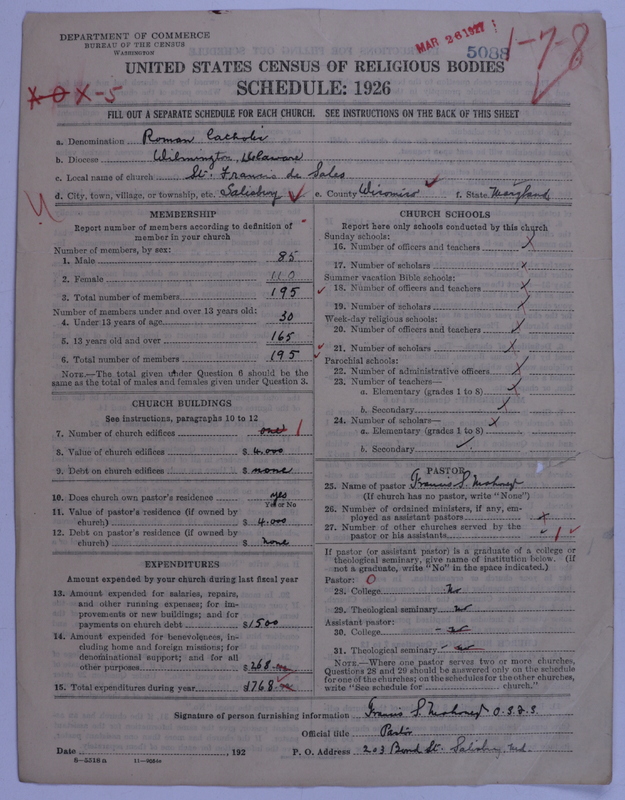 DEPARTMENT OF COMMERCE
BUREAU OF THE CENSUS
WASHINGTON
MAR 26 1927
5088
1-7-8
UNITED STATES CENSUS OF RELIGIOUS BODIES
X-5
SCHEDULE: 1926
FILL OUT A SEPARATE SCHEDULE FOR EACH CHURCH. SEE INSTRUCTIONS ON THE BACK OF THIS SHEET
a. Denomination Roman Catholic
b. Diocese Wilmington, Delaware
c. Local name of church St. Francis de Sales
d. City, town, village, or township, etc. Salisbury e. County Wicomico f. State Maryland
MEMBERSHIP
Report number of members according to definition of
member in your church
Number of members, by sex:
1. Male 85
2. Female 110
3. Total number of members 195
Number of members under and over 13 years old:
4. Under 13 years of age 30
5. 13 years old and over 165
6. Total number of members 195
NOTE.—The total given under Question 6 should be the
same as the total of males and females given under Question 3.
CHURCH BUILDINGS
See instructions, paragraphs 10 to 12
7. Number of church edifices one 1
8. Value of church edifices $ 4.000
9. Debt on church edifices $ none
10. Does church own pastor's residence yes
Yes or No
11. Value of pastor's residence (if owned by
church) $ 4.000
12. Debt on pastor's residence (if owned by
church) $ none
EXPENDITURES
Amount expended by your church during last fiscal year
13. Amount expended for salaries, repairs,
and other running expenses; for im-
provements or new buildings; and for
payments on church debt $1500
14. Amount expended for benevolences, in-
cluding home and foreign missions; for
denominational support; and for all
other purposes $ 268
15. Total expenditures during year $1768
CHURCH SCHOOLS
Report here only schools conducted by this church
Sunday schools:
16. Number of officers and teachers x
17. Number of scholars x
Summer vacation Bible schools:
18. Number of officers and teachers x
19. Number of scholars x
Week-day religious schools:
20. Number of officers and teachers x
21. Number of scholars x
Parochial schools:
22. Number of administrative officers x
23. Number of teachers—
a. Elementary (grades 1 to 8) x
b. Secondary x
24. Number of scholars— x
a. Elementary (grades 1 to 8)
b. Secondary
PASTOR
25. Name of pastor Francis S.
(If church has no pastor, write "None")
26. Number of ordained ministers, if any, em-
ployed as assistant pastors x
27. Number of other churches served by the
pastor or his assistants 1
If pastor (or assistant pastor) is a graduate of a college or
theological seminary, give name of institution below. (If
not a graduate, write "No" in the space indicated.)
Pastor: 0
28. College no
29. Theological seminary no
Assistant pastor:
30. College - no
31. Theological seminary - no
NOTE.—Where one pastor serves two or more churches,
Questions 28 and 29 should be answered only on the schedule
for one of the churches; on the schedules for the other churches,
write "See schedule for church."
Signature of person furnishing information Francis S. O.S.F.S.
Official title Pastor
Date , 192 P. O. Address 203 Bond St. Salisbury, Md.
8-5518a 11-9564